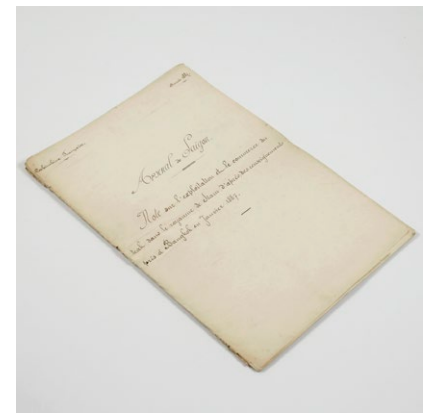 Cochinchine Française
Arsenal de Saigon
Note sur l'exploitation et le commerce du
teck dans le royaume de Siam d'après des renseignements
pris à Bangkok en Janvier 1887.